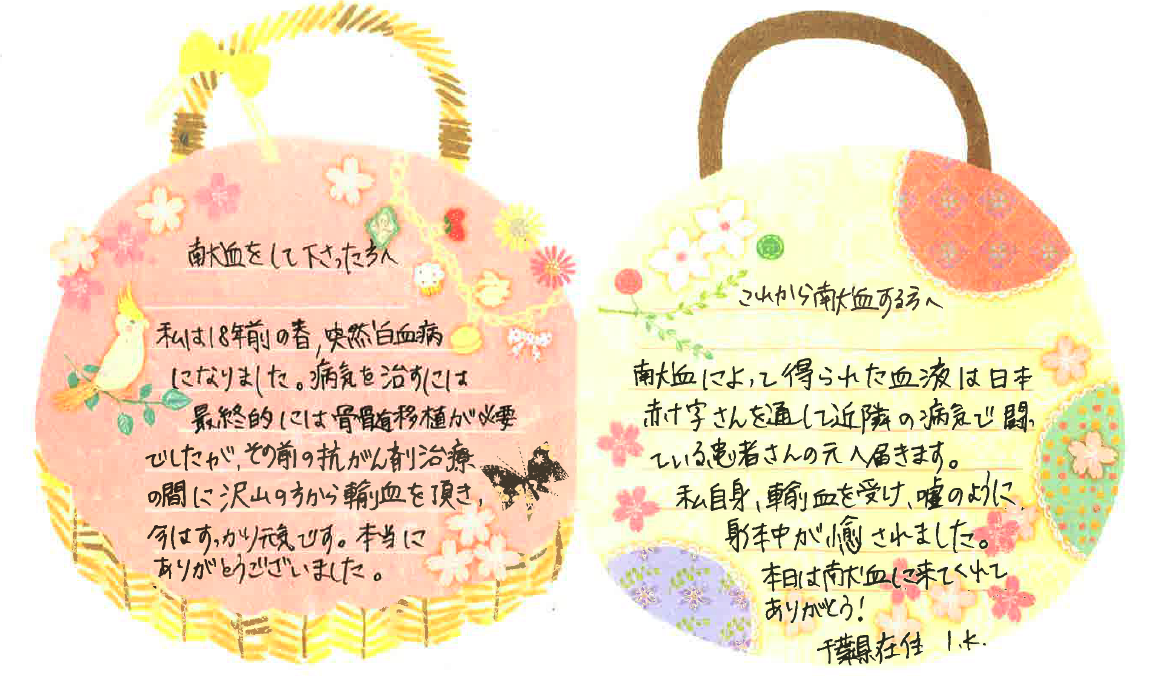 献血をして下さった方へ
私は18年前の春,突然白血病
になりました。病気を治すには
最終的には骨髄移植が必要
でしたが,その前の抗がん剤治療
の間に沢山の方から輸血を頂き,
今はすっかり元気です。本当に
ありがとうございました。
これから献血する方へ
献血によって得られた血液は日本
赤十字さんを通して近隣の病気で闘っ
ている患者さんの元へ届きます。
私自身,輸血を受け,嘘のように
身体中が癒されました。
本日は献血に来てくれて
ありがとう!
千葉県在住 I.K.